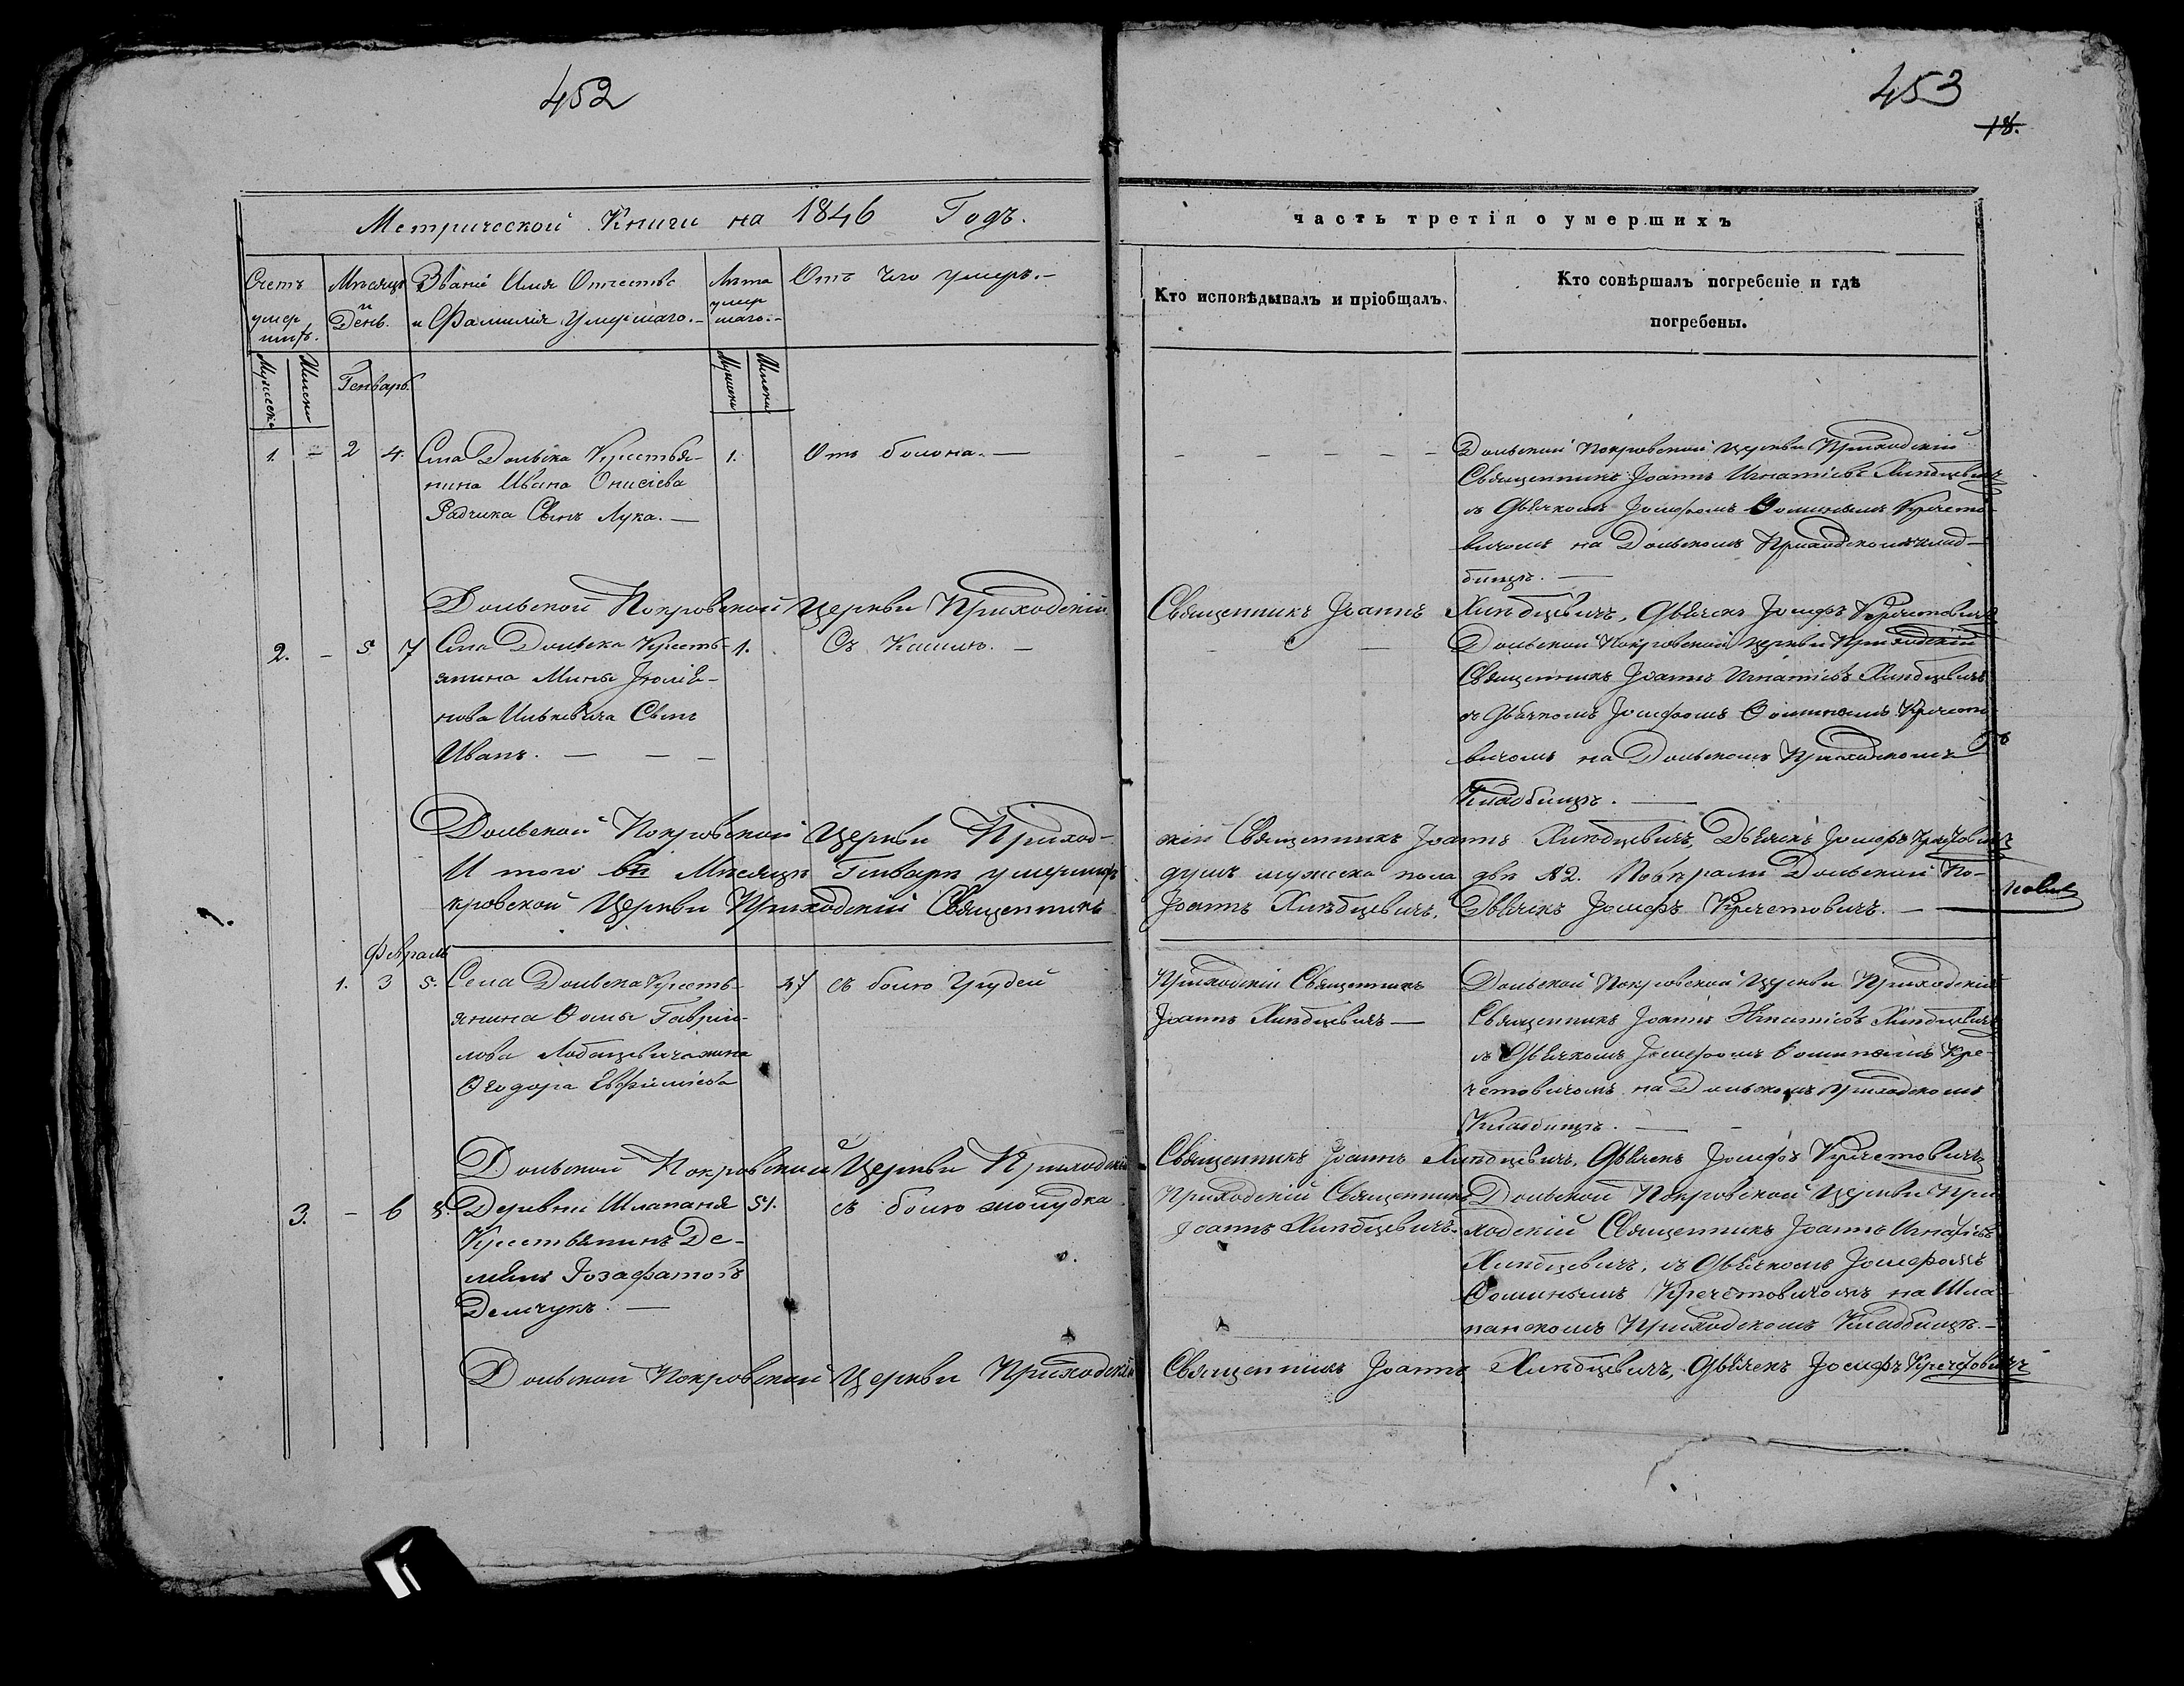 452
453
18.
Метрической Книги на 1846 Годъ.
часть третія о умершихъ
Счетъ умер шихъ.
Мѣсяцъ и День.
Званіе Имя Отчество и Фамилія Умершаго.-
Лѣта умер шаго.-
Отъ чего умеръ.-
Кто исповѣдывалъ и пріобщалъ.
Кто совѣршалъ погребеніе и гдѣ
погребены.
Мужеска
Женска
Генварь.
Мужеска
Женска
1. - 2 4. Села Дольска Крестья-
нина Ивана
Радчика Сынъ Лука. —
1.
Отъ болона. —
- - - - -
Дольской Покровской Церкви Приходскій
Священникъ Іоаннъ Игнатіевъ Хлѣбцевичъ
съ Дьячкомъ Іосифомъ Ѳоминымъ Кречето-
вичомъ на Дольскомъ Приходскомъ клад-
бищѣ. —
Дольской Покровской Церкви Приходскій Священникъ Іоаннъ Хлѣбцевичъ, Дьячекъ Іосифъ Кречетовичъ
2. - 5 7 Села Дольска Кресть-
янина Мины
Илькевича Сынъ
Иванъ. — — —
1.
Съ Кашлю. —
Дольской Покровской Церкви Приходскій
Священникъ Іоаннъ Игнатіевъ Хлѣбцевичъ
съ Дьячкомъ Іосифомъ Ѳоминымъ Кречето-
вичомъ на Дольскомъ Приходскомъ
Кладбищѣ. —
Дольской Покровской Церкви Приход-
скій Священникъ Іоаннъ Хлѣбцевичъ, Дьячекъ Іосифъ Кречетовичъ
И того въ Мѣсяцѣ Генварѣ умершихъ душъ мужеска пола двѣ №2. Повѣряли Дольской По-
кровской Церкви Приходскій Священникъ Іоаннъ Хлѣбцевичъ, Дьячекъ Іосифъ Кречетовичъ. —
Февраль
1. 3 5. Села Дольска Кресть-
янина Ѳомы Гаврии-
лова жена
Ѳеодора Евфиміева
47
съ болю Грудей
Приходскій Священникъ
Іоаннъ Хлѣбцевичъ —
Дольской Покровской Церкви Приходскій
Священникъ Іоаннъ Игнатіевъ Хлѣбцевичъ
съ Дьячкомъ Іосифомъ Ѳоминымъ Кре-
четовичомъ на Дольскомъ Приходскомъ
Кладбищѣ. —
Дольской Покровской Церкви Приходскій Священникъ Іоаннъ Хлѣбцевичъ, Дьячекъ Іосифъ Кречетовичъ
3. - 6 8. Деревни Шлапаня
Крестьянинъ Де-
Іозафатовъ
Демчукъ. —
51.
съ болю жолудка
Приходскій Священникъ
Іоаннъ Хлѣбцевичъ.
Дольской Покровской Церкви При-
ходскій Священникъ Іоаннъ Игнатіевъ
Хлѣбцевичъ, съ Дьячкомъ Іосифомъ
Ѳоминымъ Кречетовичомъ на Шла-
панскомъ Приходскомъ Кладбищѣ. —
Дольской Покровской Церкви Приходскій Священникъ Іоаннъ Хлѣбцевичъ, Дьячекъ Іосифъ Кречетовичъ